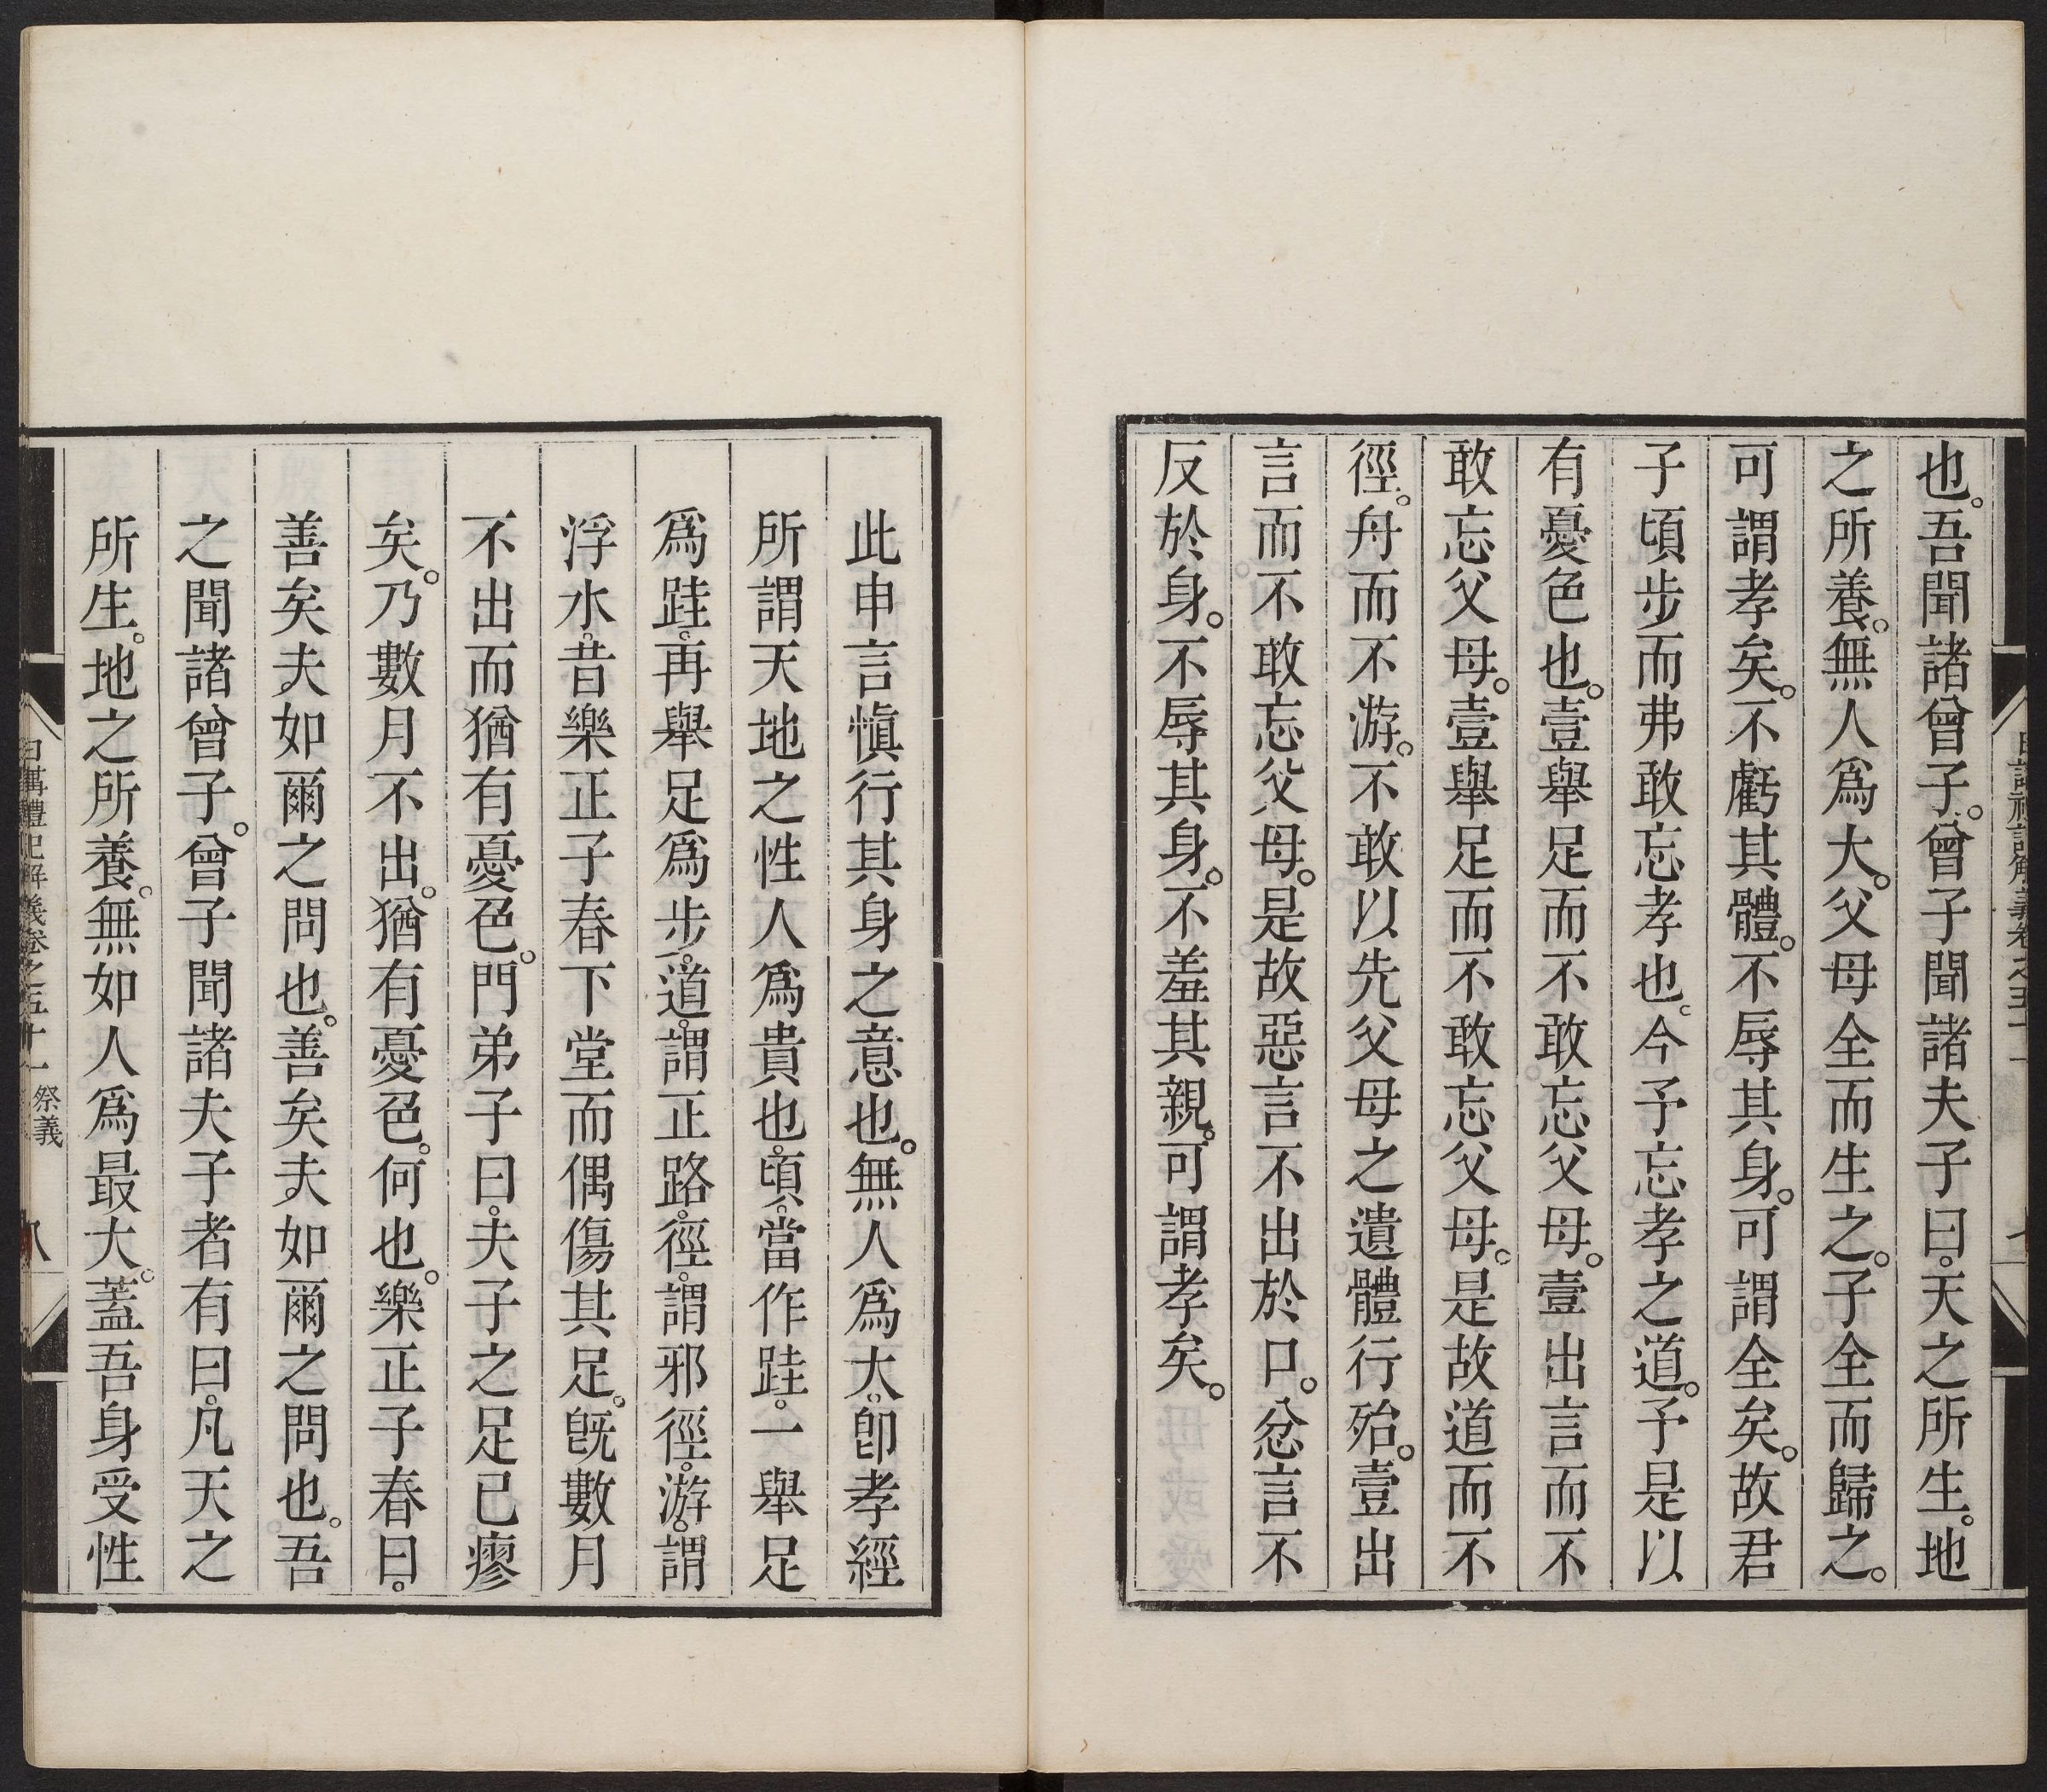 也。吾聞諸曾子。曾子聞諸夫子曰。天之所生。地
之所養。無人爲大。父母全而生之。子全而歸之。
可謂孝矣。不虧其體。不辱其身。可謂全矣。故君
子頃步而弗敢忘孝也。今予忘孝之道。予是以
有憂色也。壹舉足而不敢忘父母。壹出言而不
敢忘父母。壹舉足而不敢忘父母。是故道而不
徑。舟而不游。不敢以先父母之遺體行殆。壹出
言而不敢忘父母。是故惡言不出於口。忿言不
反於身。不辱其身。不羞其親。可謂孝矣。
此申言愼行其身之意也。無人爲大。卽孝經
所謂天地之性人爲貴也。頃。當作跬。一舉足
爲跬。再舉足爲步。道。謂正路。徑。謂邪徑。游。謂
浮水。昔樂正子春下堂而偶傷其足。旣數月
不出而猶有憂色。門弟子曰。夫子之足已瘳
矣。乃數月不出。猶有憂色。何也。樂正子春曰。
善矣夫。如爾之問也。善矣夫。如爾之問也。吾
之聞諸曾子。曾子聞諸夫子者有曰。凡天之
所生。地之所養。無如人爲最大。蓋吾身受性
日講禮記解義卷之五十一 祭義 八